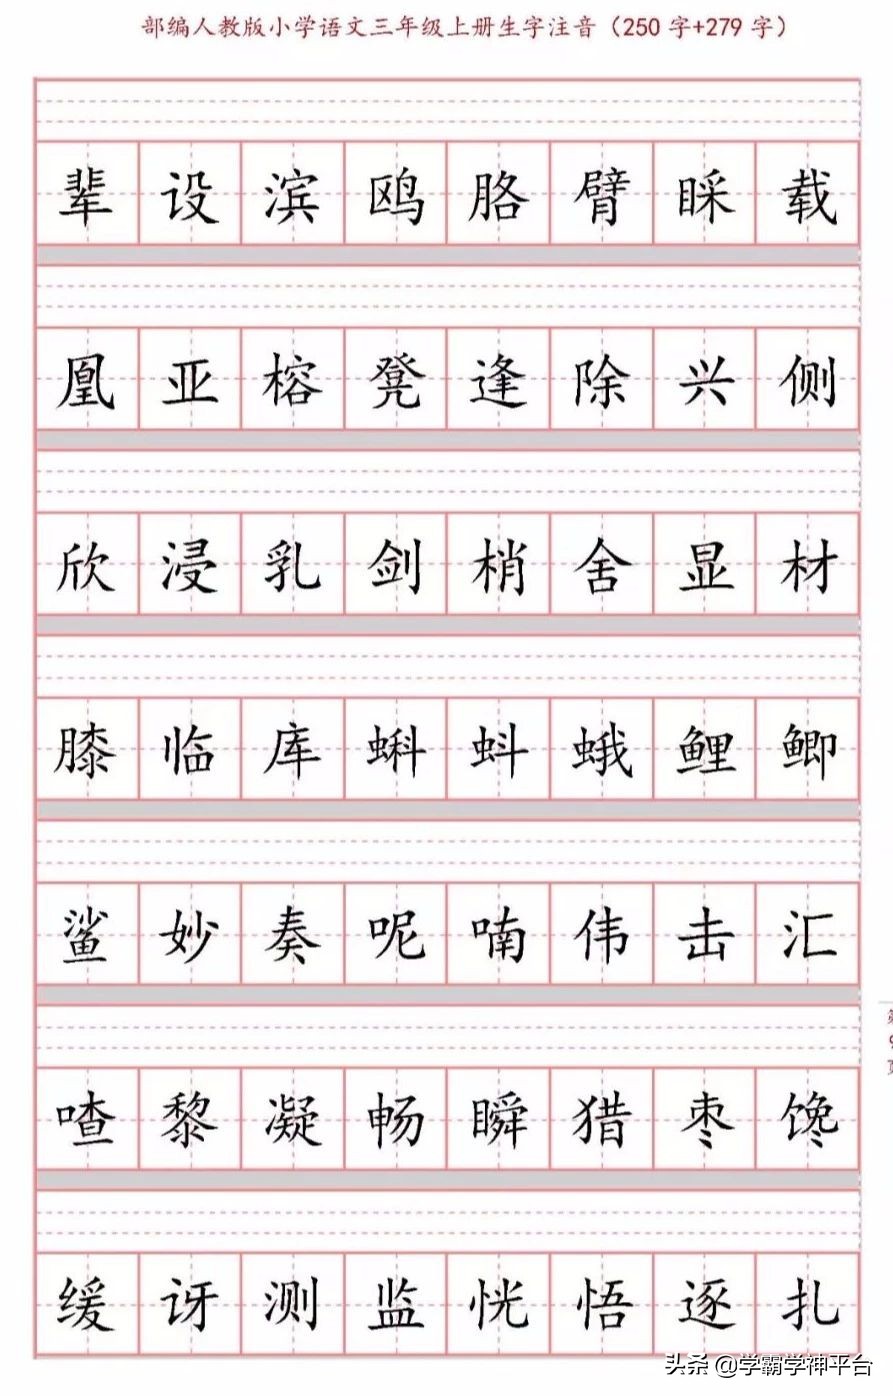 部编人教版小学语文三年级上册生字注音（250 字+279 字）
辈 设 滨 鸥 胳 臂 睬 载
凰 亚 榕 凳 逢 除 兴 侧
欣 浸 乳 剑 梢 舍 显 材
膝 临 库 蝌 蚪 蛾 鲤 鲫
鲨 妙 奏 呢 喃 伟 击 汇
喳 黎 凝 畅 瞬 猎 枣 馋
缓 讶 测 监 恍 悟 逐 扎
头条 @学霸学神平台